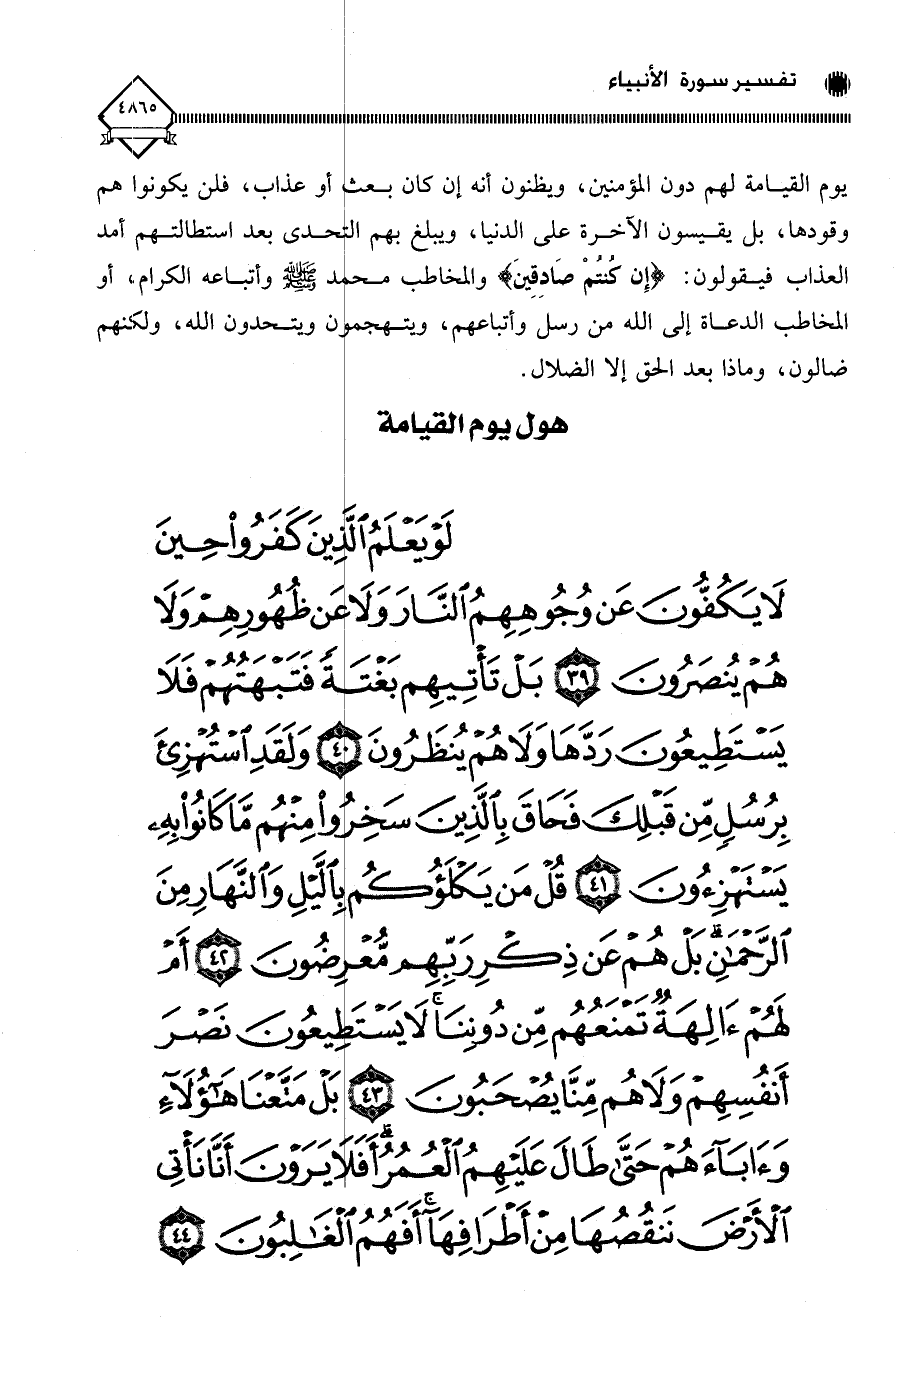 تفسير سورة الأنبياء
٤٨٦٥
يوم القيامة لهم دون المؤمنين، ويظنون أنه إن كان بعث أو عذاب، فلن يكونوا هم
وقودها، بل يقيسون الآخرة على الدنيا، ويبلغ بهم التحدى بعد استطالتهم أمد
العذاب فيقولون: ﴿إِن كُنتُمْ صَادِقِينَ﴾ والمخاطب محمد ﷺ وأتباعه الكرام، أو
المخاطب الدعاة إلى الله من رسل وأتباعهم، ويتهجمون ويتحدون الله، ولكنهم
ضالون، وماذا بعد الحق إلا الضلال.
هول يوم القيامة
لَوْ يَعْلَمُ ٱلَّذِينَ كَفَرُوا۟ حِينَ
لَا يَكُفُّونَ عَن وُجُوهِهِمُ ٱلنَّارَ وَلَا عَن ظُهُورِهِمْ وَلَا
هُمْ يُنصَرُونَ ٣٩ بَلْ تَأْتِيهِم بَغْتَةً فَتَبْهَتُهُمْ فَلَا
يَسْتَطِيعُونَ رَدَّهَا وَلَا هُمْ يُنظَرُونَ ٤٠ وَلَقَدِ ٱسْتُهْزِئَ
بِرُسُلٍ مِّن قَبْلِكَ فَحَاقَ بِٱلَّذِينَ سَخِرُوا۟ مِنْهُم مَّا كَانُوا۟ بِهِۦ
يَسْتَهْزِءُونَ ٤١ قُلْ مَن يَكْلَؤُكُم بِٱلَّيْلِ وَٱلنَّهَارِ مِنَ
ٱلرَّحْمَٰنِ ۗ بَلْ هُمْ عَن ذِكْرِ رَبِّهِم مُّعْرِضُونَ ٤٢ أَمْ
لَهُمْ ءَالِهَةٌ تَمْنَعُهُم مِّن دُونِنَا ۚ لَا يَسْتَطِيعُونَ نَصْرَ
أَنفُسِهِمْ وَلَا هُم مِّنَّا يُصْحَبُونَ ٤٣ بَلْ مَتَّعْنَا هَٰٓؤُلَآءِ
وَءَابَآءَهُمْ حَتَّىٰ طَالَ عَلَيْهِمُ ٱلْعُمُرُ ۗ أَفَلَا يَرَوْنَ أَنَّا نَأْتِى
ٱلْأَرْضَ نَنقُصُهَا مِنْ أَطْرَافِهَآ ۚ أَفَهُمُ ٱلْغَٰلِبُونَ ٤٤